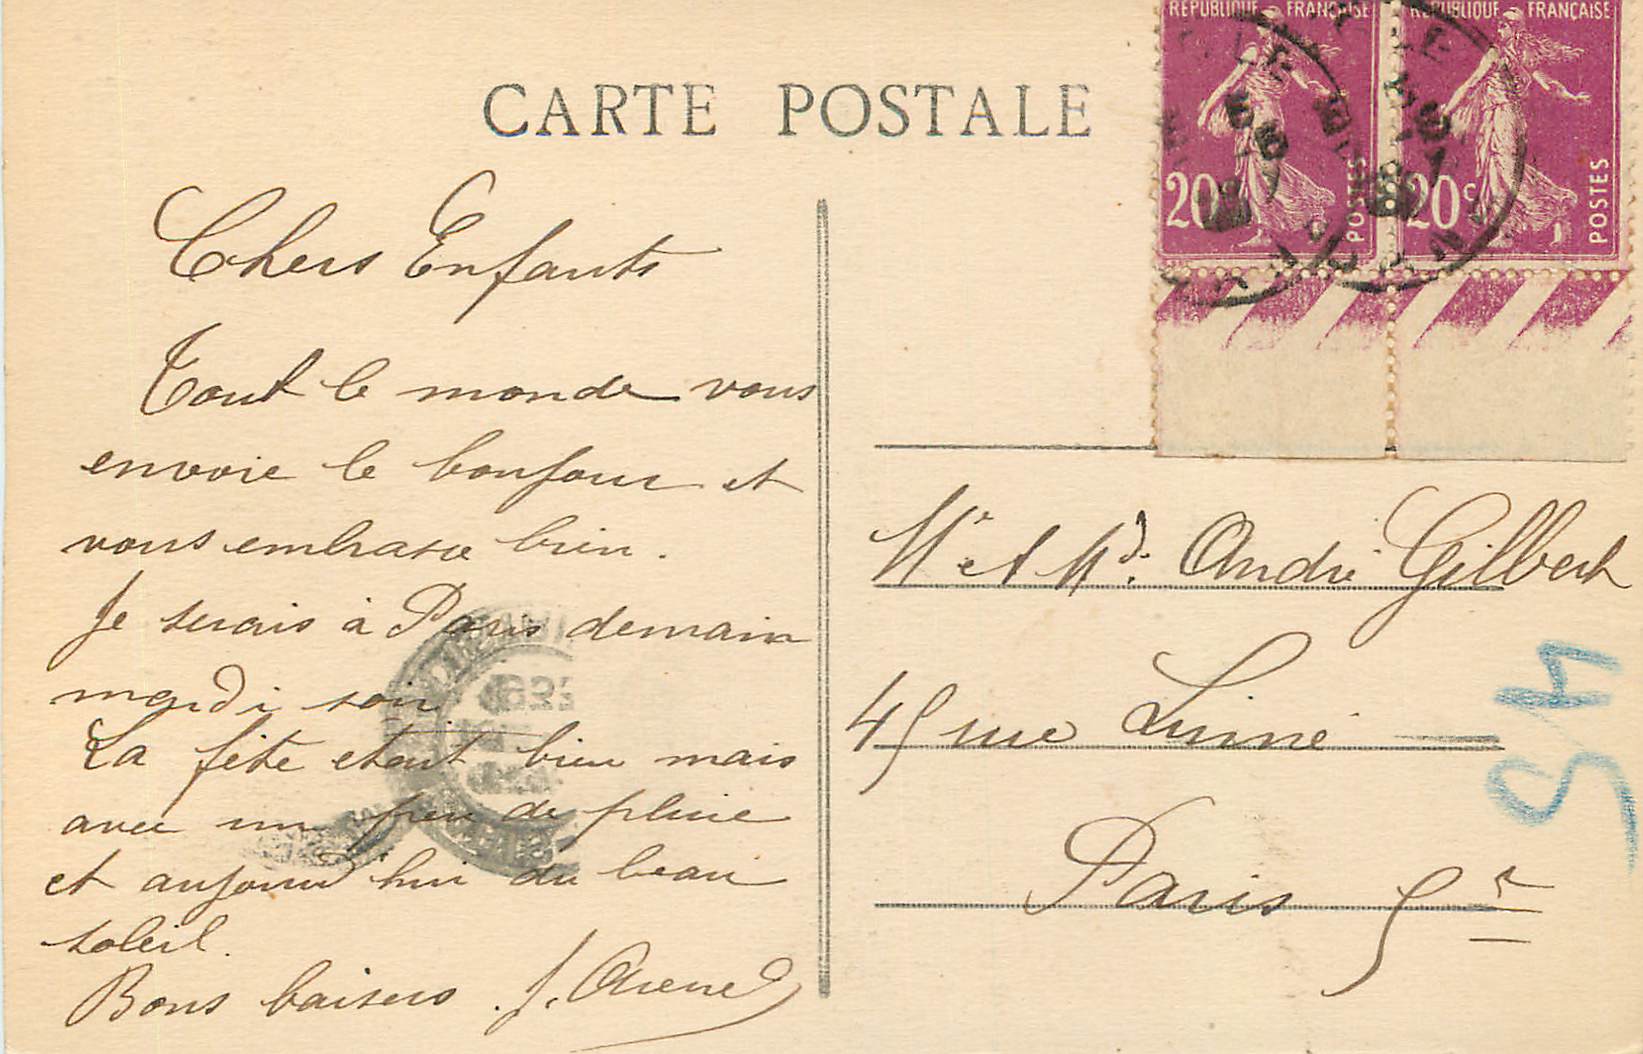 RÉPUBLIQUE FRANÇAISE
20
POSTES
RÉPUBLIQUE FRANÇAISE
20c
POSTES
CARTE POSTALE
Chers Enfants
Tout le monde vous
envoie le bonjour et
vous embrasse bien.
Je serais à Paris demain
mardi soir
La fête etait bien mais
avec un peu de pluie
et aujourd'hui du beau
soleil.
Bons baisers J.
Mr et Md. André Gilbert
45 rue Linné
Paris 5e